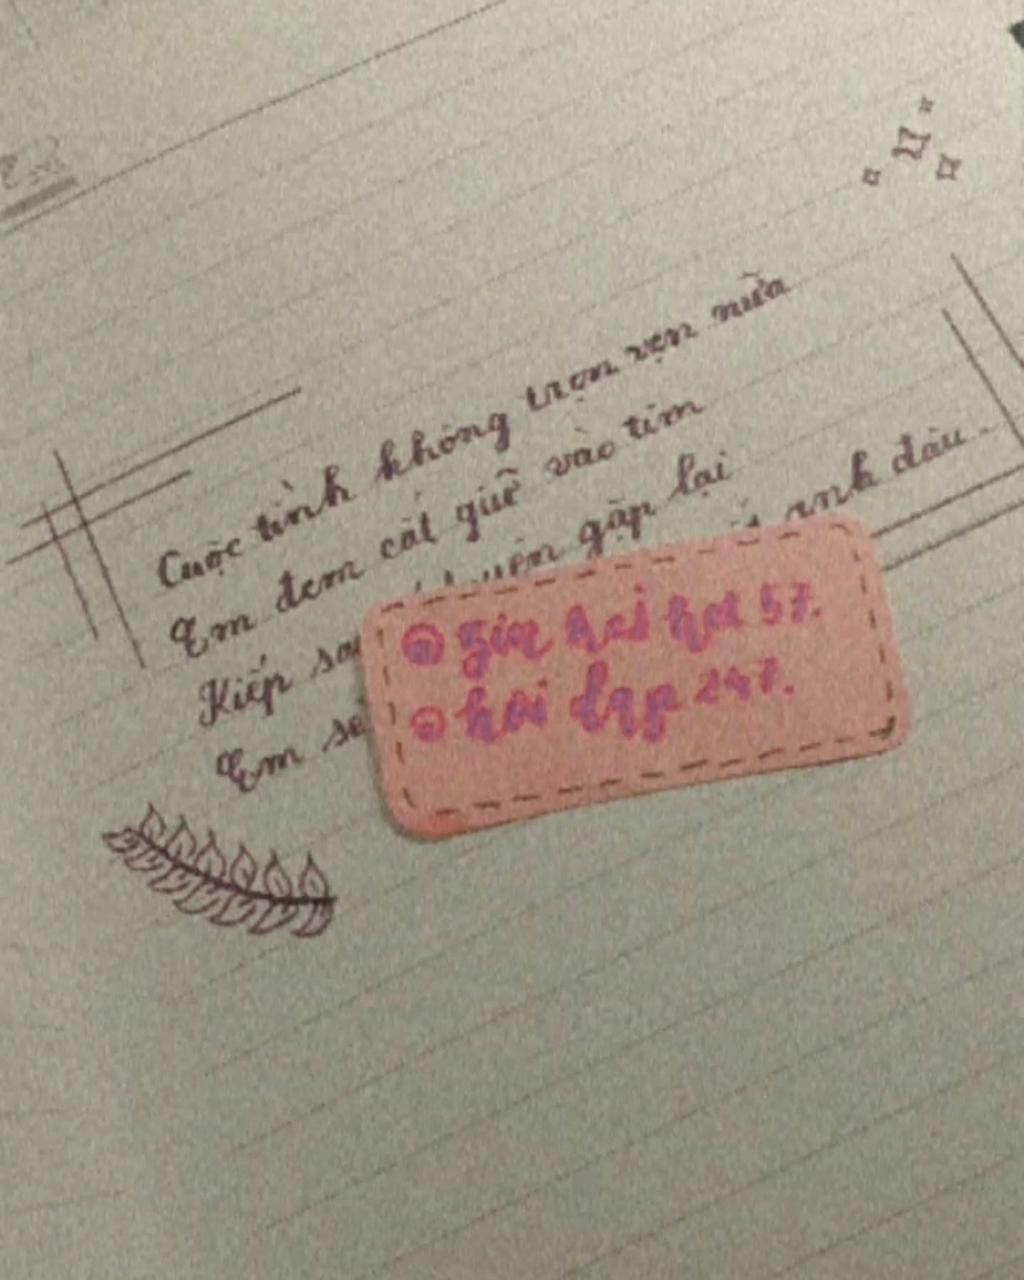 Cuộc tình không trọn vẹn nữa
Em đem cất giữ vào tim
Kiếp sau duyên gặp lại
Em sẽ anh đâu..
@ gia hai hot 57.
@ hoi dap 247.